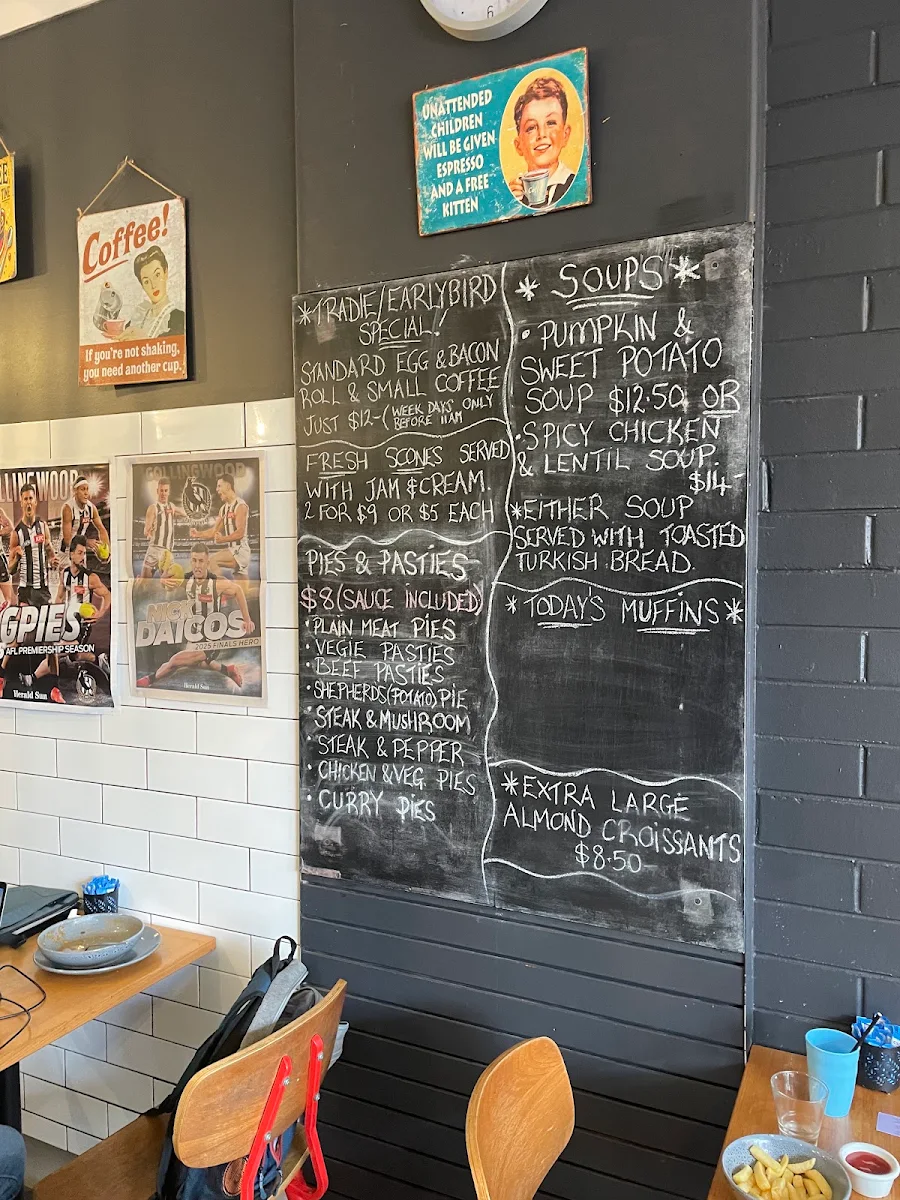 6
UNATTENDED
CHILDREN
WILL BE GIVEN
ESPRESSO
AND A FREE
KITTEN
Coffee!
If you're not shaking,
you need another cup.
LLINGWOOD
GPIES
AFL PREMIERSHIP SEASON
Herald Sun
COLLINGWOOD
NICK
DAICOS
2025 FINALS HERO
Herald Sun
*TRADIE/EARLYBIRD
SPECIAL!
STANDARD EGG & BACON
ROLL & SMALL COFFEE
JUST $12-(WEEK DAYS ONLY
BEFORE 11AM
FRESH SCONES SERVED
WITH JAM & CREAM.
2 FOR $9 OR $5 EACH
PIES & PASTIES
$8 (SAUCE INCLUDED)
• PLAIN MEAT PIES
• VEGIE PASTIES
• BEEF PASTIES
• SHEPHERDS(POTATO) PIE
• STEAK & MUSHROOM
• STEAK & PEPPER
• CHICKEN & VEG PIES
• CURRY PIES
* SOUPS *
• PUMPKIN &
SWEET POTATO
SOUP $12.50 OR
• SPICY CHICKEN
& LENTIL SOUP.
$14-
*EITHER SOUP
SERVED WITH TOASTED
TURKISH BREAD.
* TODAY'S MUFFINS *
*EXTRA LARGE
ALMOND CROISSANTS
$8.50